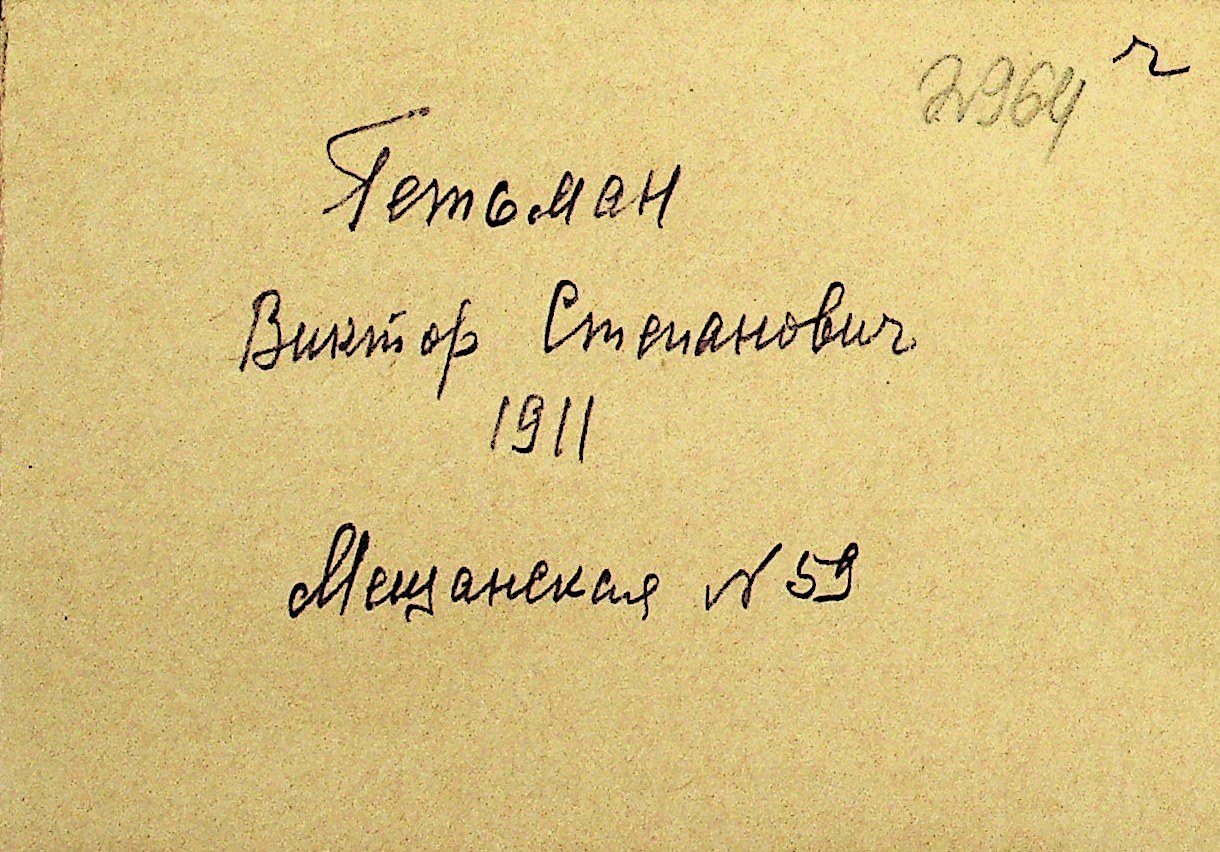 2964 г
Гетьман
Виктор Степанович
1911
Мещанская N 59